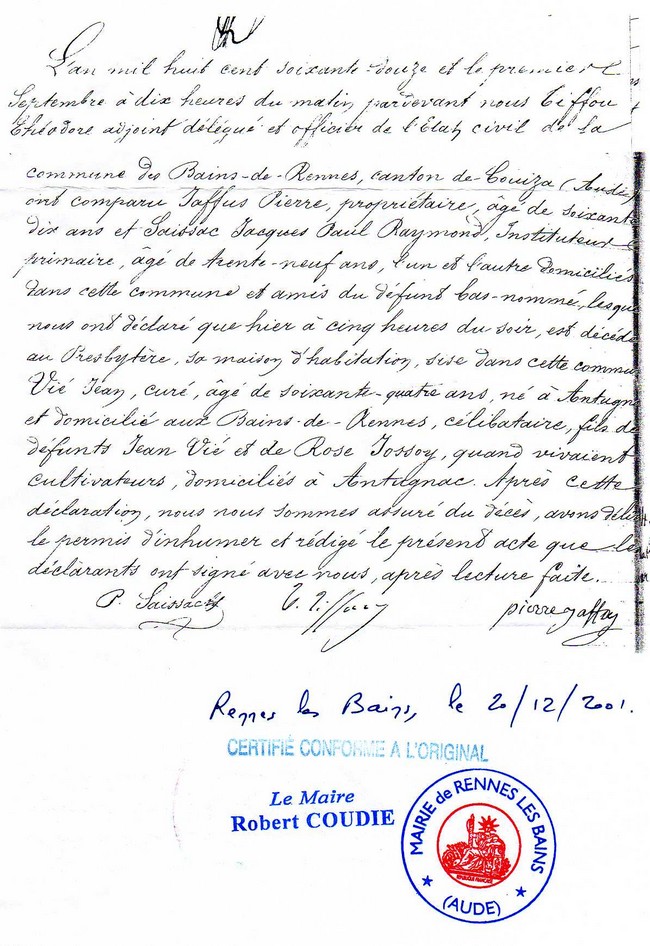 L'an mil huit cent soixante-douze et le premier
Septembre à dix heures du matin, pardevant nous Tiffou
Théodore adjoint délégué et officier de l'Etat civil de la
commune des Bains-de-Rennes, canton de Couiza (Aude)
ont comparu Jaffus Pierre, propriétaire, âgé de soixante
dix ans et Saissac Jacques Paul Raymond, Instituteur
primaire, âgé de trente-neuf ans, l'un et l'autre domiciliés
dans cette commune et amis du défunt bas-nommé, lesque
nous ont déclaré que hier à cinq heures du soir, est décédé
au Presbytère, sa maison d'habitation, sise dans cette commu
Vié Jean, curé, âgé de soixante-quatre ans, né à Antugn
et domicilié aux Bains-de-Rennes, célibataire, fils de
défunts Jean Vié et de Rose Jossoy, quand vivaient
cultivateurs, domiciliés à Antugnac. Après cette
déclaration, nous nous sommes assuré du décès, avons déli
le permis d'inhumer et rédigé le présent acte que les
déclarants ont signé avec nous, après lecture faite.
P. Saissac T. Tiffou pierre jaffus
Rennes les Bains, le 20/12/2001.
CERTIFIÉ CONFORME A L'ORIGINAL
Le Maire
Robert COUDIE
MAIRIE de RENNES LES BAINS
(AUDE)